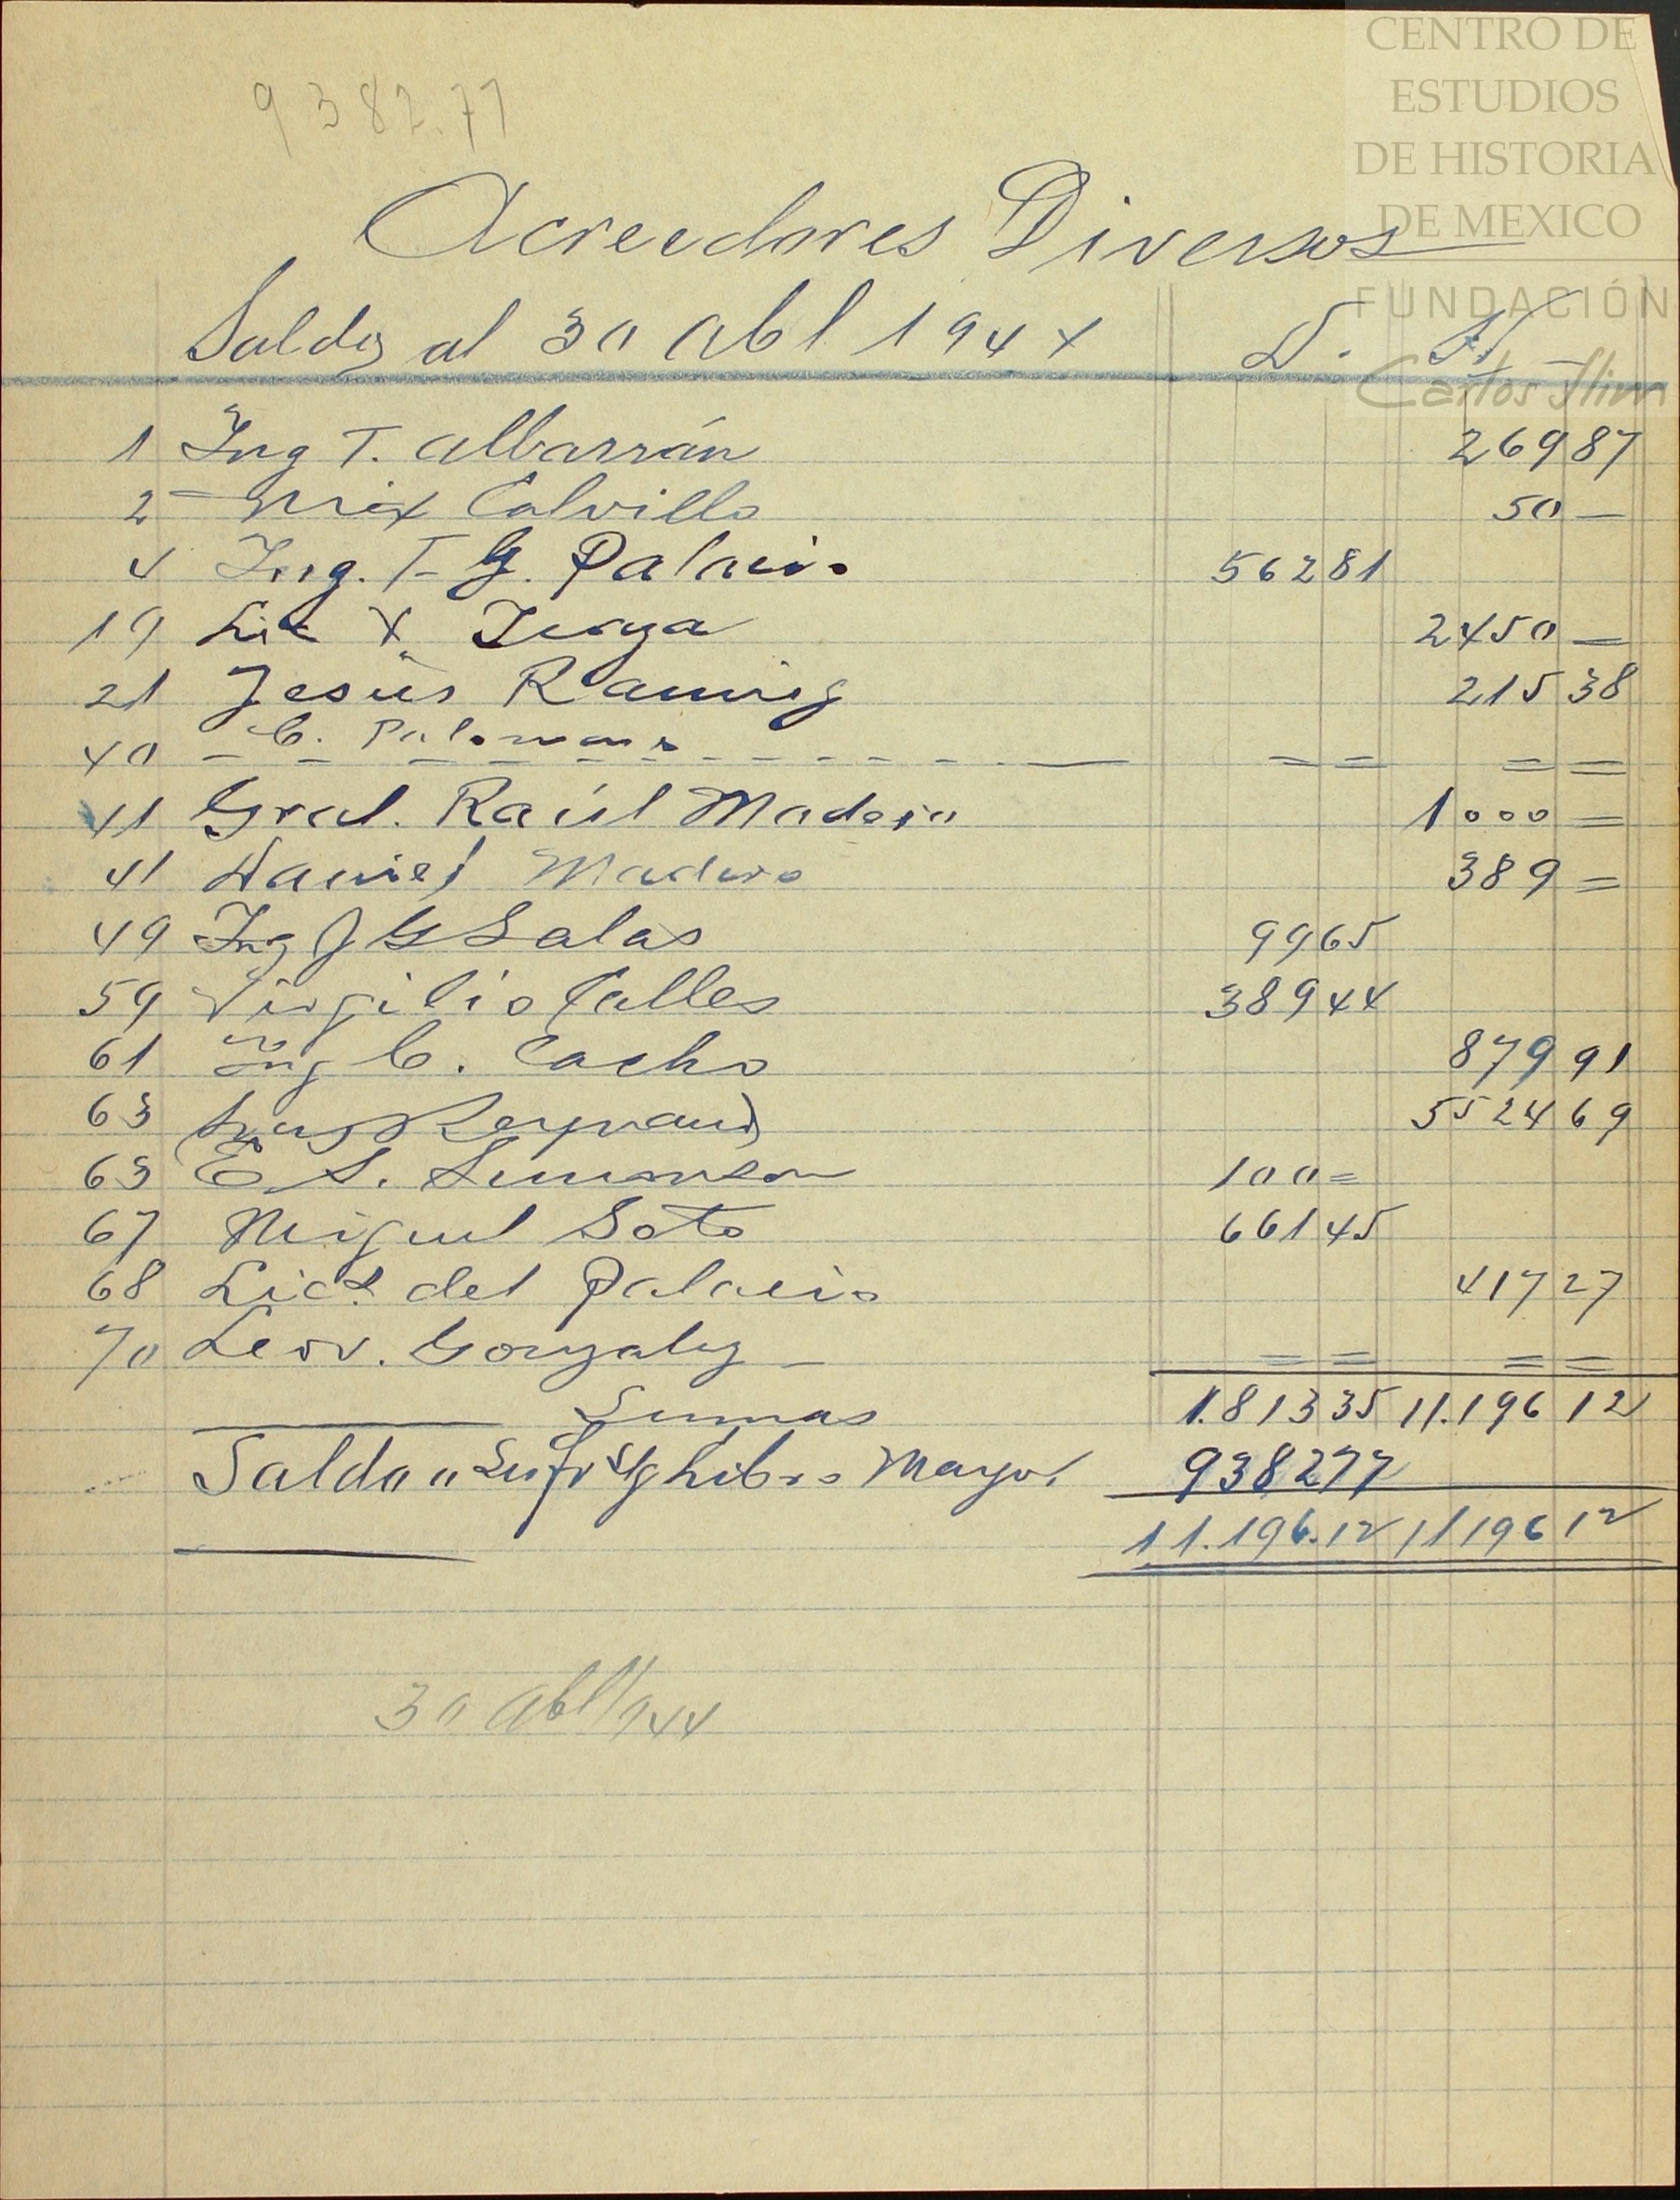 CENTRO DE
ESTUDIOS
DE HISTORIA
DE MEXICO
FUNDACIÓN
Carlos Slim
9382.77
Acreedores Diversos
Saldos al 30 Abl 1944 D. H.
1 Ing T. Albarrán 269 87
2 Calvillo 50 —
4 Ing. T. G. Palacio 562 81
19 Lic 2450 —
21 Jesús Ramirez 215 38
40 — C. Palomares — — = = = =
41 Gral. Raúl Madero 1000 =
41 Daniel Madero 389 =
49 Ing J G Salas 99 65
59 Virgilio Calles 389 44
61 Ing C. Cacho 879 91
63 Reynaud 5524 69
63 E S. 100 =
67 Miguel Soto 661 45
68 Lic del Palacio 417 27
70 Leov. Gonzalez — = = = =
Sumas 1.813 35 11.196 12
Saldo " Libro Mayor 9382 77
11.196.12 11196 12
30 Abl/944